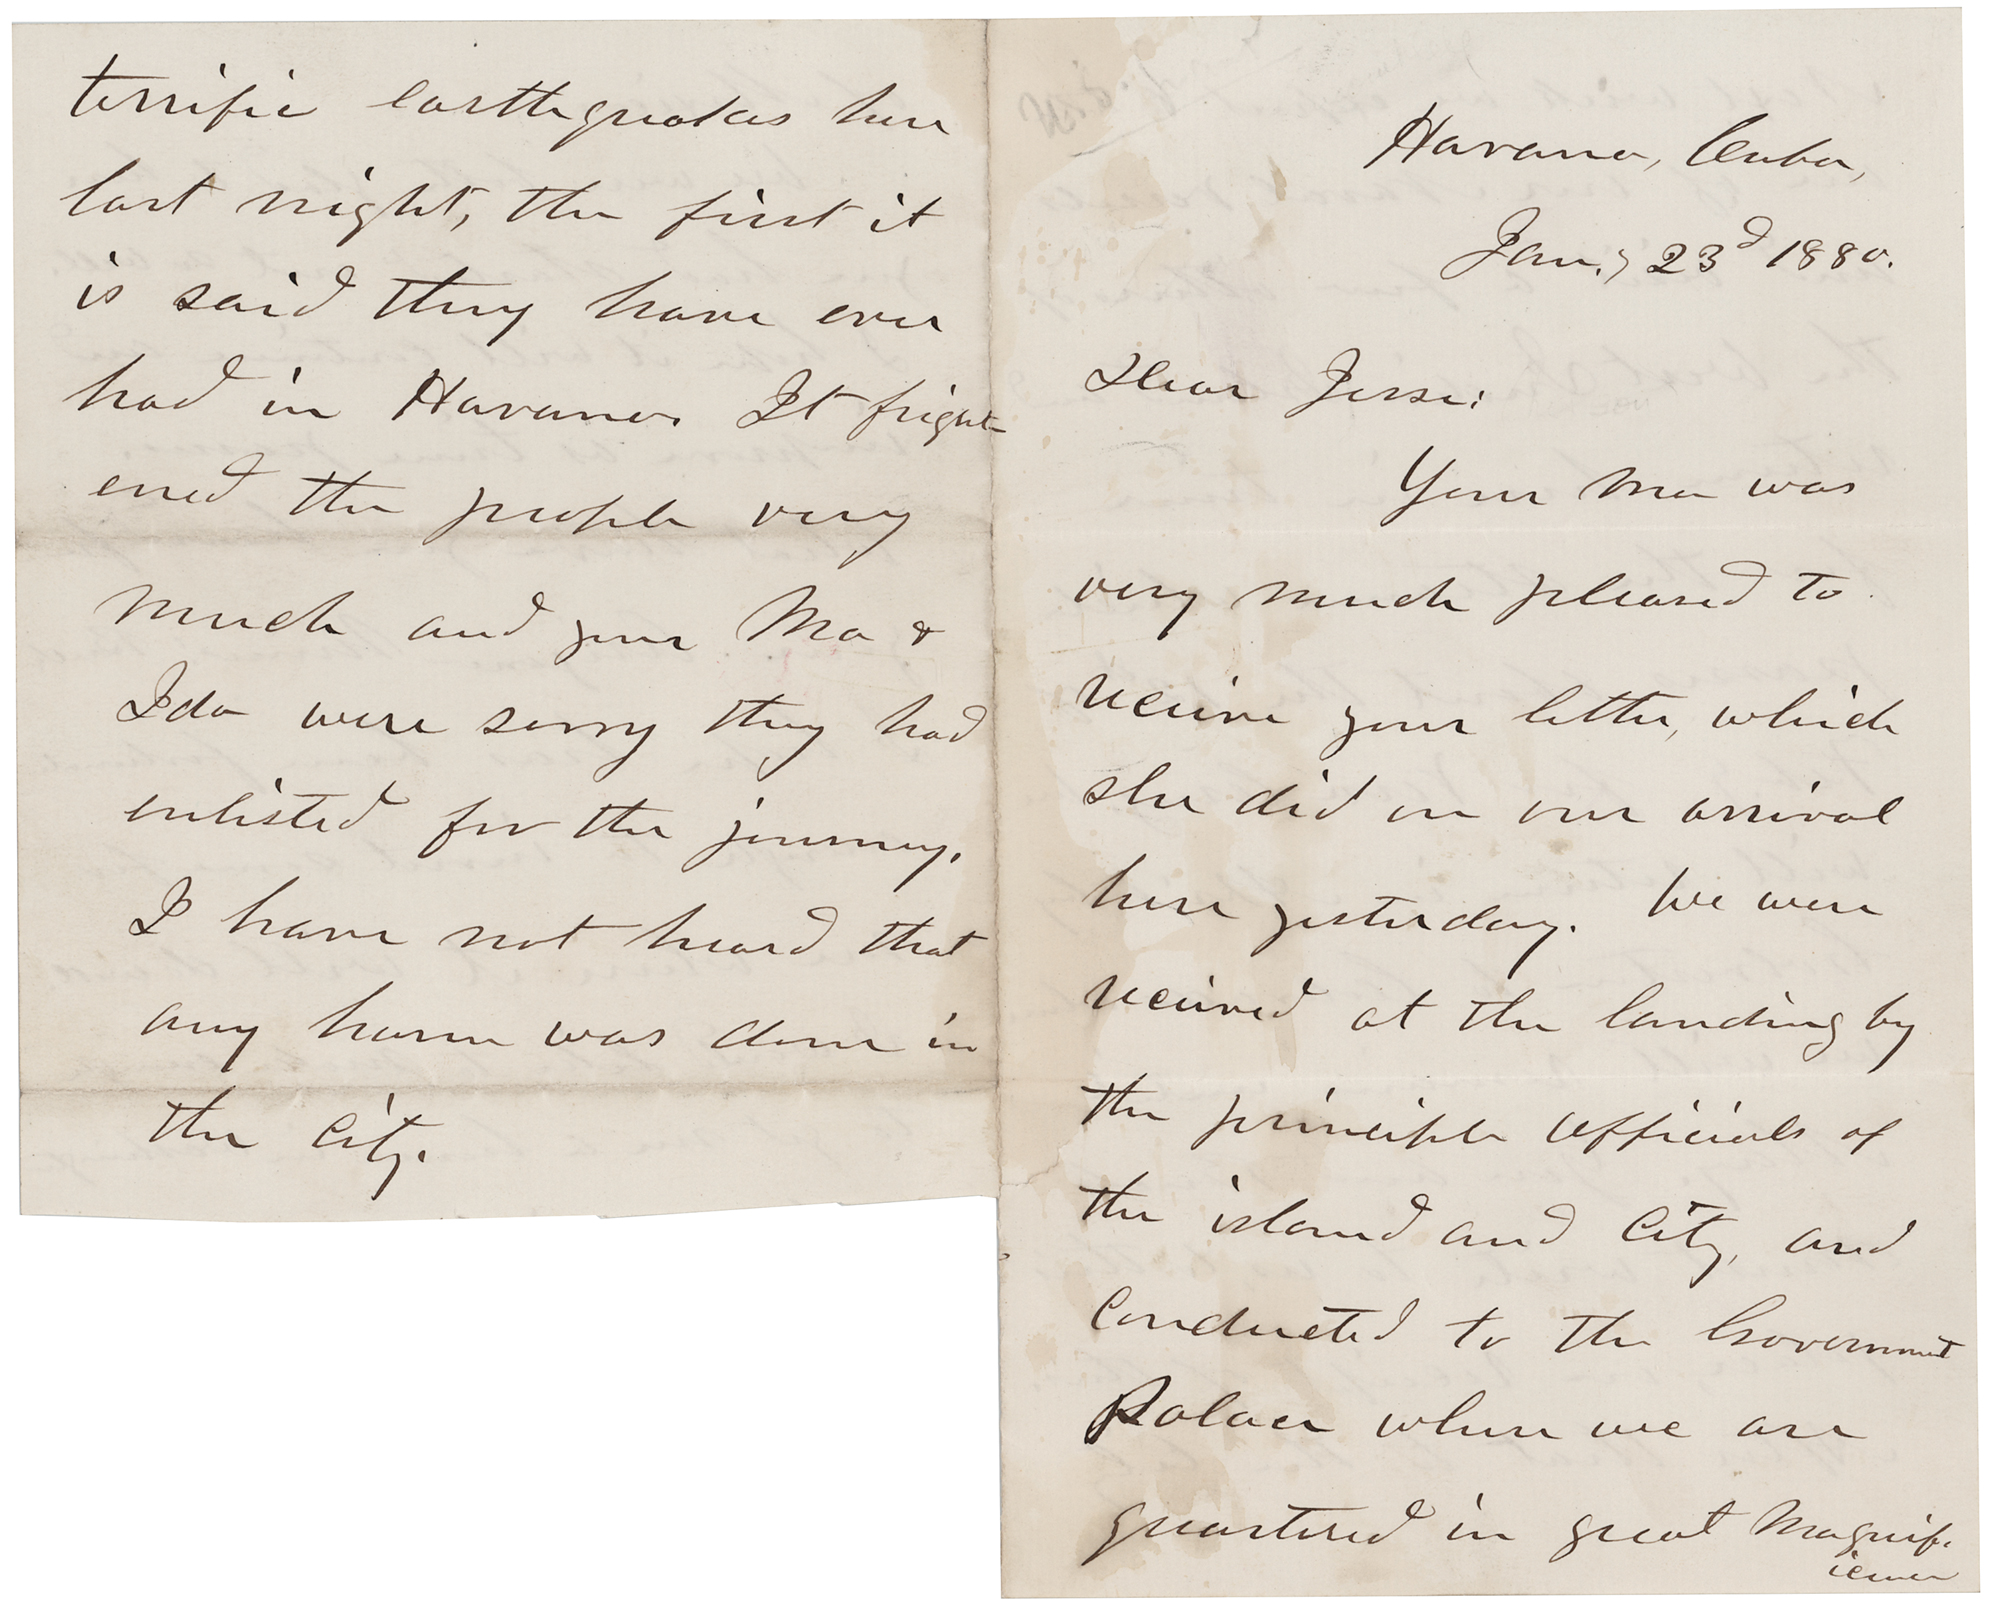 Havana, Cuba,
Jan.; 23d 1880.
Dear Jesse:
Your Ma was
very much pleased to
receive your letter, which
she did on our arrival
here yesterday. We were
received at the landing by
the principle officials of
the island and City, and
conducted to the Government
Palace where we are
quartered in great Magnif-
icence
terrific earthquakes here
last night, the first it
is said they have ever
had in Havana. It fright-
ened the people very
much and your Ma &
Ida were sorry they had
enlisted for the journey.
I have not heard that
any harm was done in
the City.